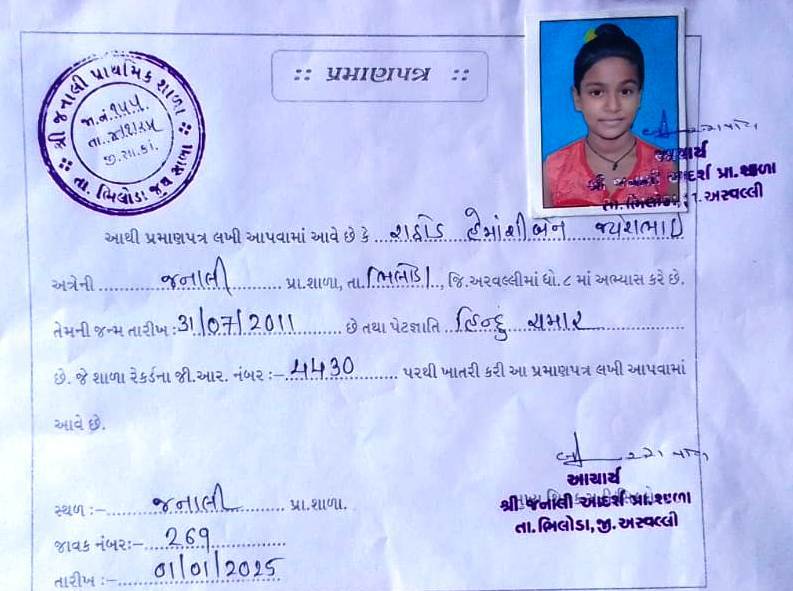 :: પ્રમાણપત્ર ::
શ્રી જનાલી પ્રાથમિક શાળા
જા.નં.૧૫૫.
જી.સા.કાં.
તા. ભિલોડા
આચાર્ય
આદર્શ પ્રા.શાળા
અરવલ્લી
આથી પ્રમાણપત્ર લખી આપવામાં આવે છે કે રાઠોડ હેમાંશીબેન જયેશભાઈ
અત્રેની જનાલી પ્રા.શાળા, તા. ભિલોડા, જિ.અરવલ્લીમાં ધો. ૮ માં અભ્યાસ કરે છે.
તેમની જન્મ તારીખ : 31/07/2011 છે તથા પેટાજ્ઞાતિ હિન્દુ ચમાર
છે. જે શાળા રેકર્ડના જી.આર. નંબર :- 4430 પરથી ખાતરી કરી આ પ્રમાણપત્ર લખી આપવામાં
આવે છે.
સ્થળ :- જનાલી પ્રા.શાળા.
જાવક નંબર:- 269
તારીખ :- 01/01/2025
આચાર્ય
શ્રી જનાલી આદર્શ પ્રા.શાળા
તા.ભિલોડા, જી. અરવલ્લી